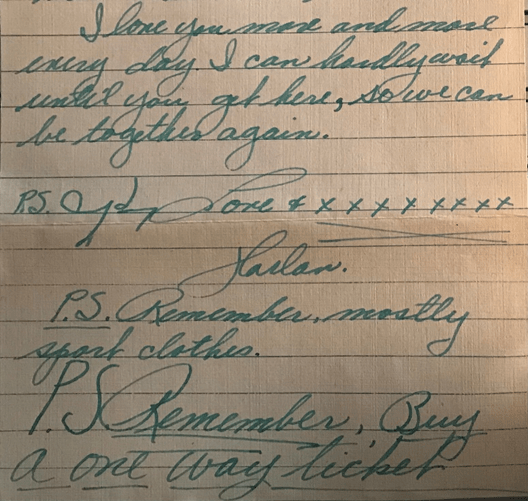 I love you more and more
every day. I can hardly wait
until you get here, so we can
be together again.
P.S. Love & x x x x x x x x x
Harlan.
P.S. Remember, mostly
sport clothes.
P.S Remember, Buy
a one way ticket